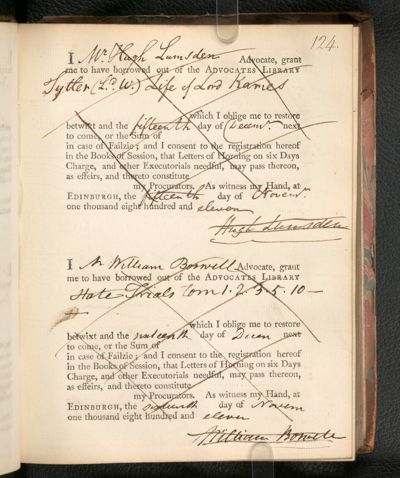 124.
I Mr. Hugh Lumsden Advocate, grant
me to have borrowed out of the ADVOCATES LIBRARY
Tytler (Ld. W.) Life of Lord Kames
which I oblige me to restore
betwixt and the fifteenth day of Decemr. next
to come, or the Sum of
in case of Failzie; and I consent to the registration hereof
in the Books of Session, that Letters of Horning on six Days
Charge, and other Executorials needful, may pass thereon,
as effeirs, and thereto constitute
my Procurators. As witness my Hand, at
EDINBURGH, the fifteenth day of Novemr.
one thousand eight hundred and eleven
Hugh Lumsden
I Mr William Boswell Advocate, grant
me to have borrowed out of the ADVOCATES LIBRARY
State Trials tom 1. 2. 3. 5. 10 —
which I oblige me to restore
betwixt and the sixteenth day of Decem next
to come, or the Sum of
in case of Failzie; and I consent to the registration hereof
in the Books of Session, that Letters of Horning on six Days
Charge, and other Executorials needful, may pass thereon,
as effeirs, and thereto constitute
my Procurators. As witness my Hand, at
EDINBURGH, the sixteenth day of Novem
one thousand eight hundred and eleven
William Boswell